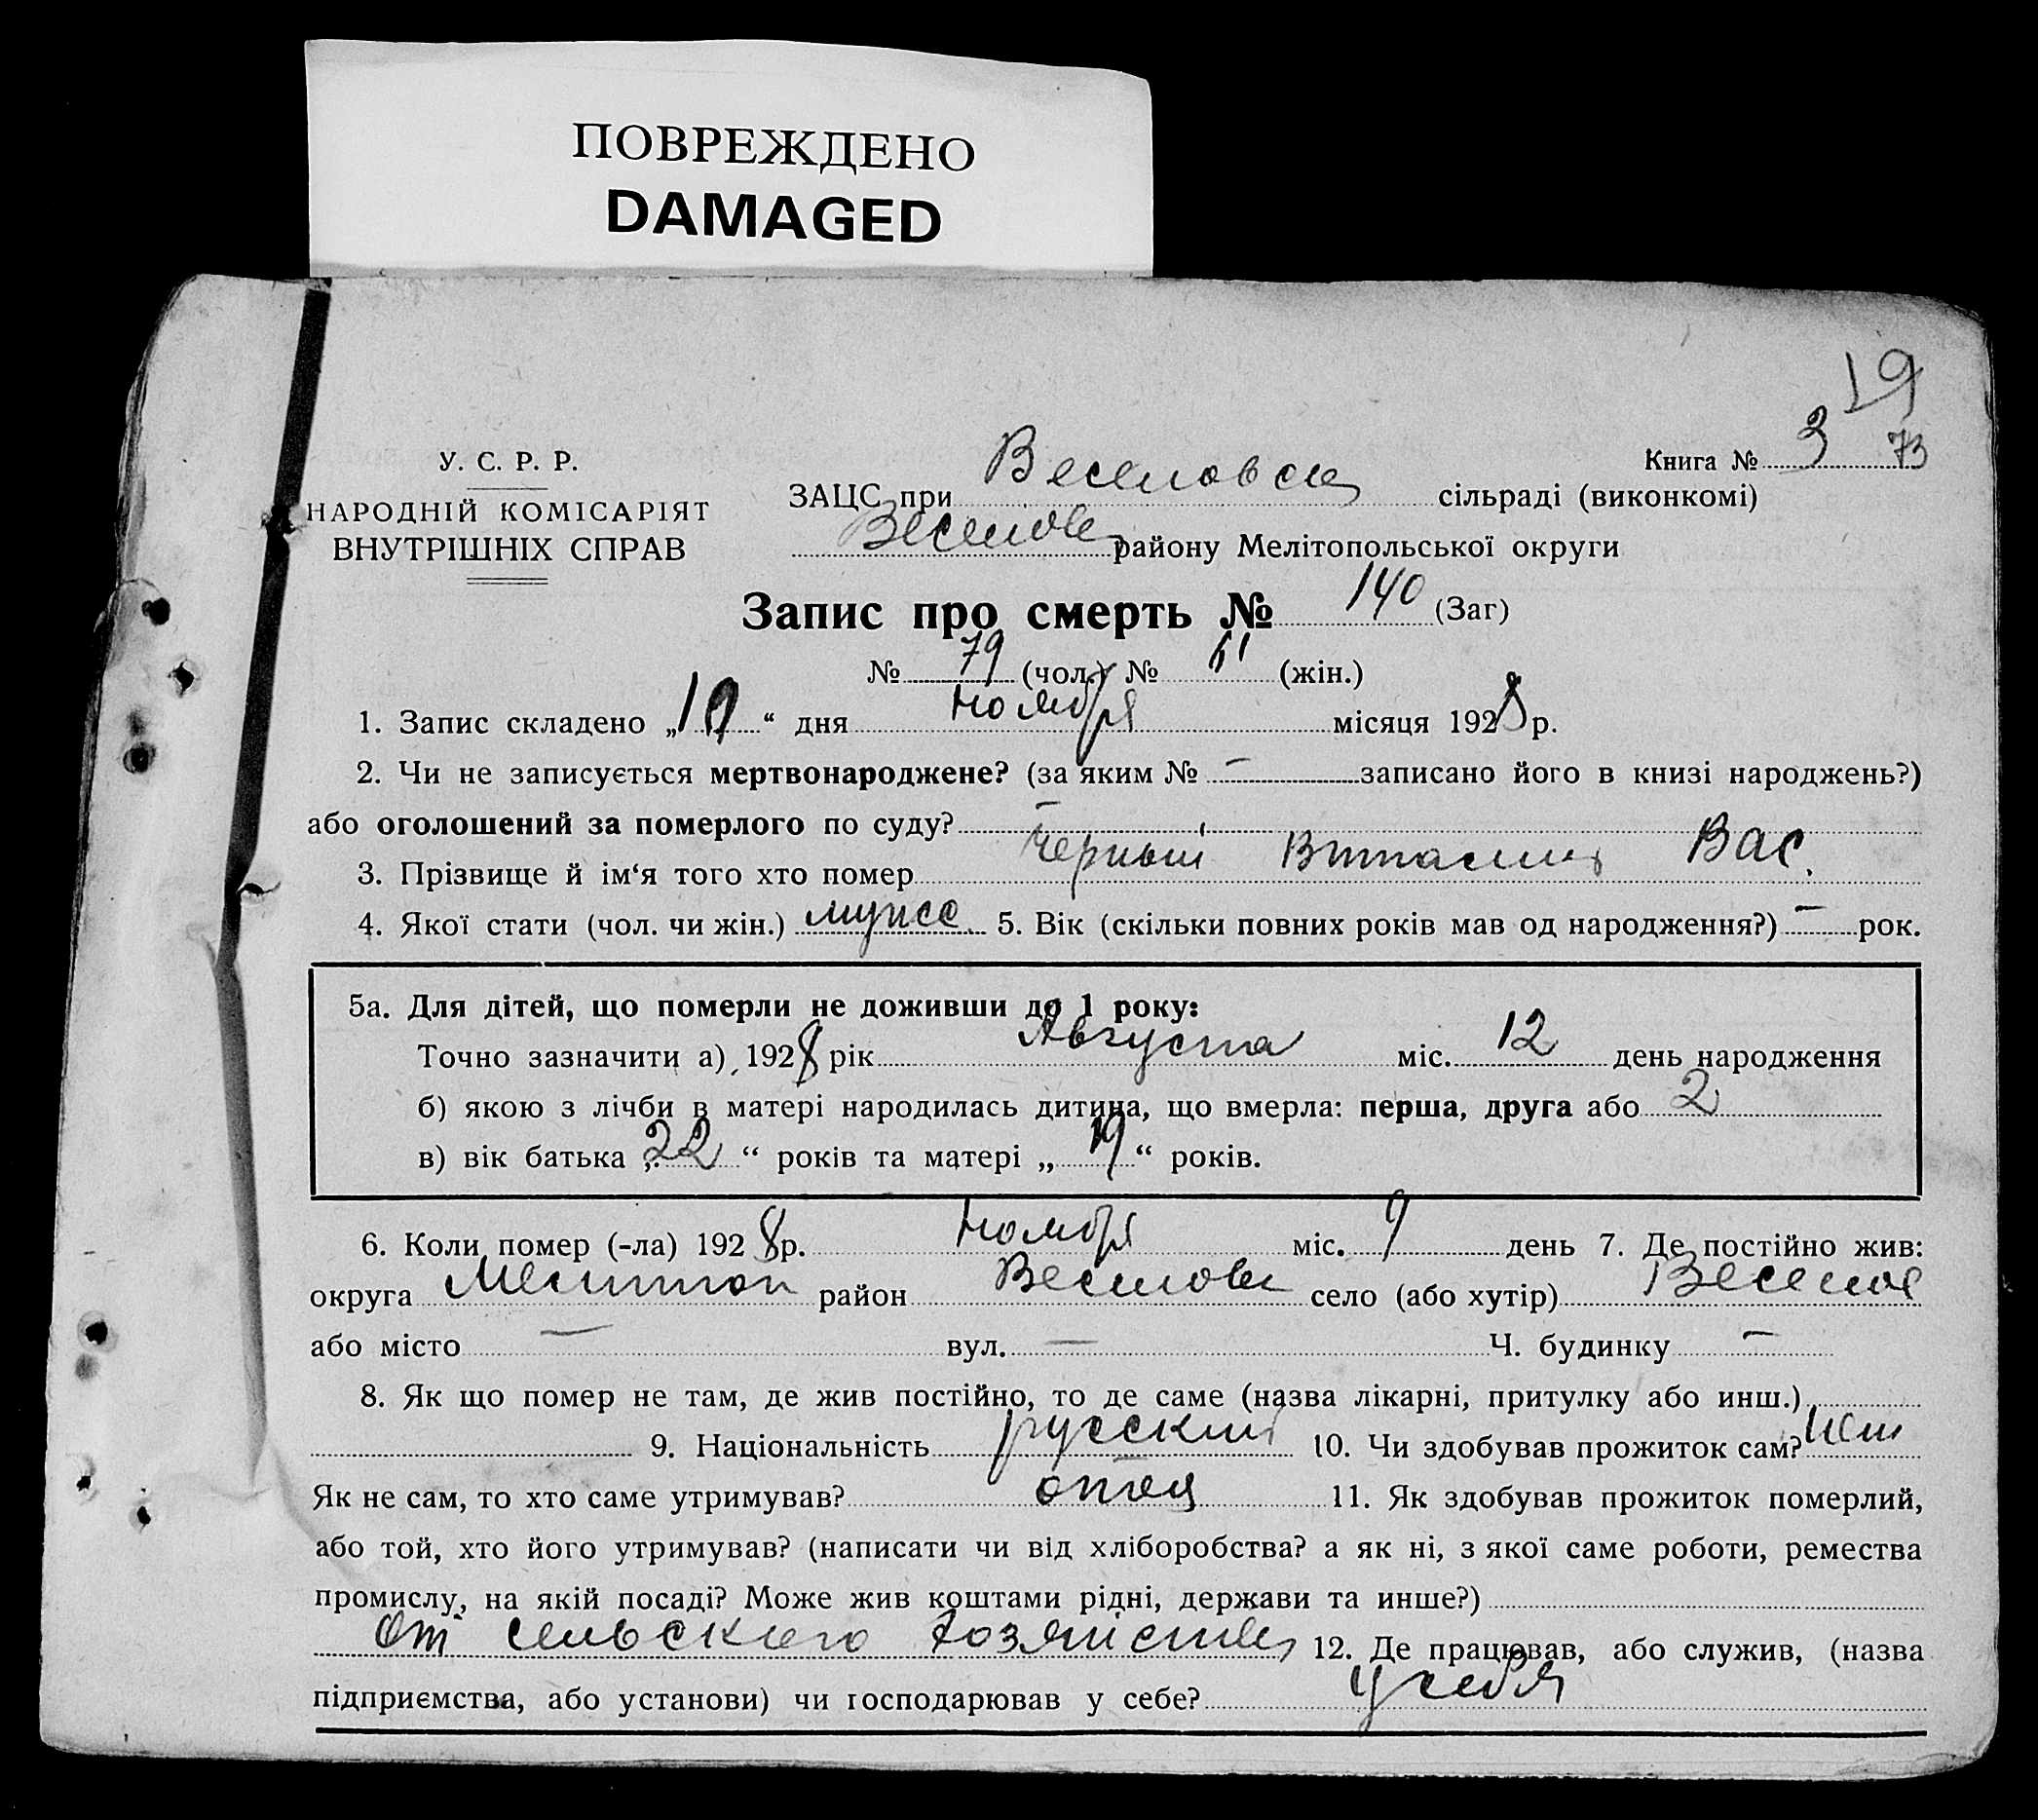 ПОВРЕЖДЕНО
DAMAGED
19
У. С. Р. Р.
НАРОДНІЙ КОМІСАРІЯТ
ВНУТРІШНІХ СПРАВ
Книга № 3 73
ЗАЦС при Веселовск сільраді (виконкомі)
Веселов району Мелітопольської округи
Запис про смерть № 140 (Заг)
№ 79 (чол.) № 61 (жін.)
1. Запис складено „10“ дня ноября місяця 1928 р.
2. Чи не записується мертвонароджене? (за яким № — записано його в книзі народжень?)
або оголошений за померлого по суду? —
3. Прізвище й ім‘я того хто помер Черный Виталий Вас.
4. Якої стати (чол. чи жін.) мужск. 5. Вік (скільки повних років мав од народження?) — рок.
5а. Для дітей, що померли не доживши до 1 року:
Точно зазначити а) 1928 рік Августа міс. 12 день народження
б) якою з лічби в матері народилась дитина, що вмерла: перша, друга або 2
в) вік батька „22“ років та матері „19“ років.
6. Коли помер (-ла) 1928 р. ноября міс. 9 день 7. Де постійно жив:
округа Мелитоп район Веселовск село (або хутір) Веселое
або місто — вул. — Ч. будинку —
8. Як що помер не там, де жив постійно, то де саме (назва лікарні, притулку або инш.)
9. Національність русский 10. Чи здобував прожиток сам? нет
Як не сам, то хто саме утримував? отец 11. Як здобував прожиток померлий,
або той, хто його утримував? (написати чи від хліборобства? а як ні, з якої саме роботи, ремества
промислу, на якій посаді? Може жив коштами рідні, держави та инше?)
От сельского хозяйства 12. Де працював, або служив, (назва
підприємства, або установи) чи господарював у себе? у себя